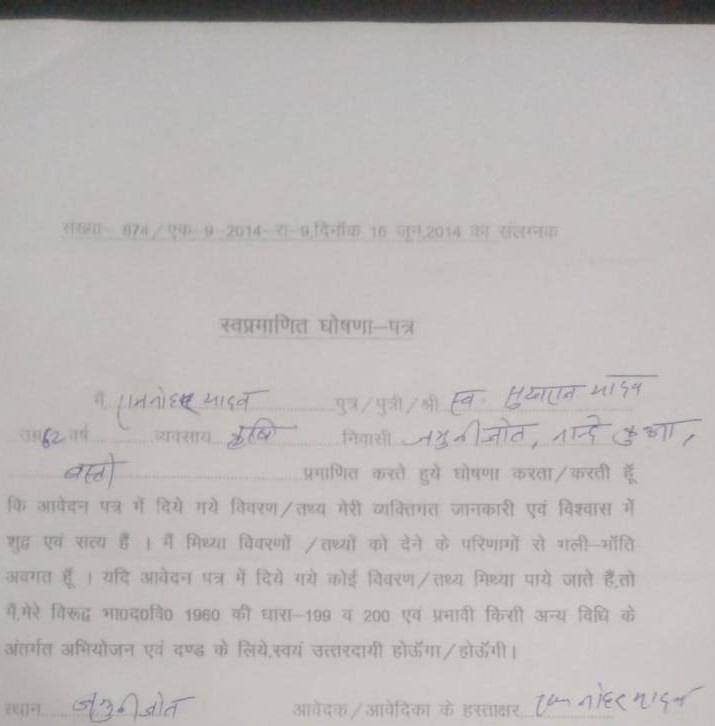 संख्या 974/एक-9-2014-रा-9,दिनाँक 16 जून,2014 का संलग्नक
स्वप्रमाणित घोषणा-पत्र
मैं यादव पुत्र/पुत्री/श्री स्व. यादव
उम्र 62 वर्ष व्यवसाय कृषि निवासी
बस्ती प्रमाणित करते हुये घोषणा करता/करती हूँ
कि आवेदन पत्र में दिये गये विवरण/तथ्य मेरी व्यक्तिगत जानकारी एवं विश्वास में
शुद्व एवं सत्य हैं । मैं मिथ्या विवरणों /तथ्यों को देने के परिणामों से भली-भाँति
अवगत हूँ । यदि आवेदन पत्र में दिये गये कोई विवरण/तथ्य मिथ्या पाये जाते हैं,तो
मैं,मेरे विरूद्व भा0द0वि0 1960 की धारा-199 व 200 एवं प्रभावी किसी अन्य विधि के
अंतर्गत अभियोजन एवं दण्ड के लिये,स्वयं उत्तरदायी होऊँगा/होऊँगी।
स्थान आवेदक/आवेदिका के हस्ताक्षर यादव